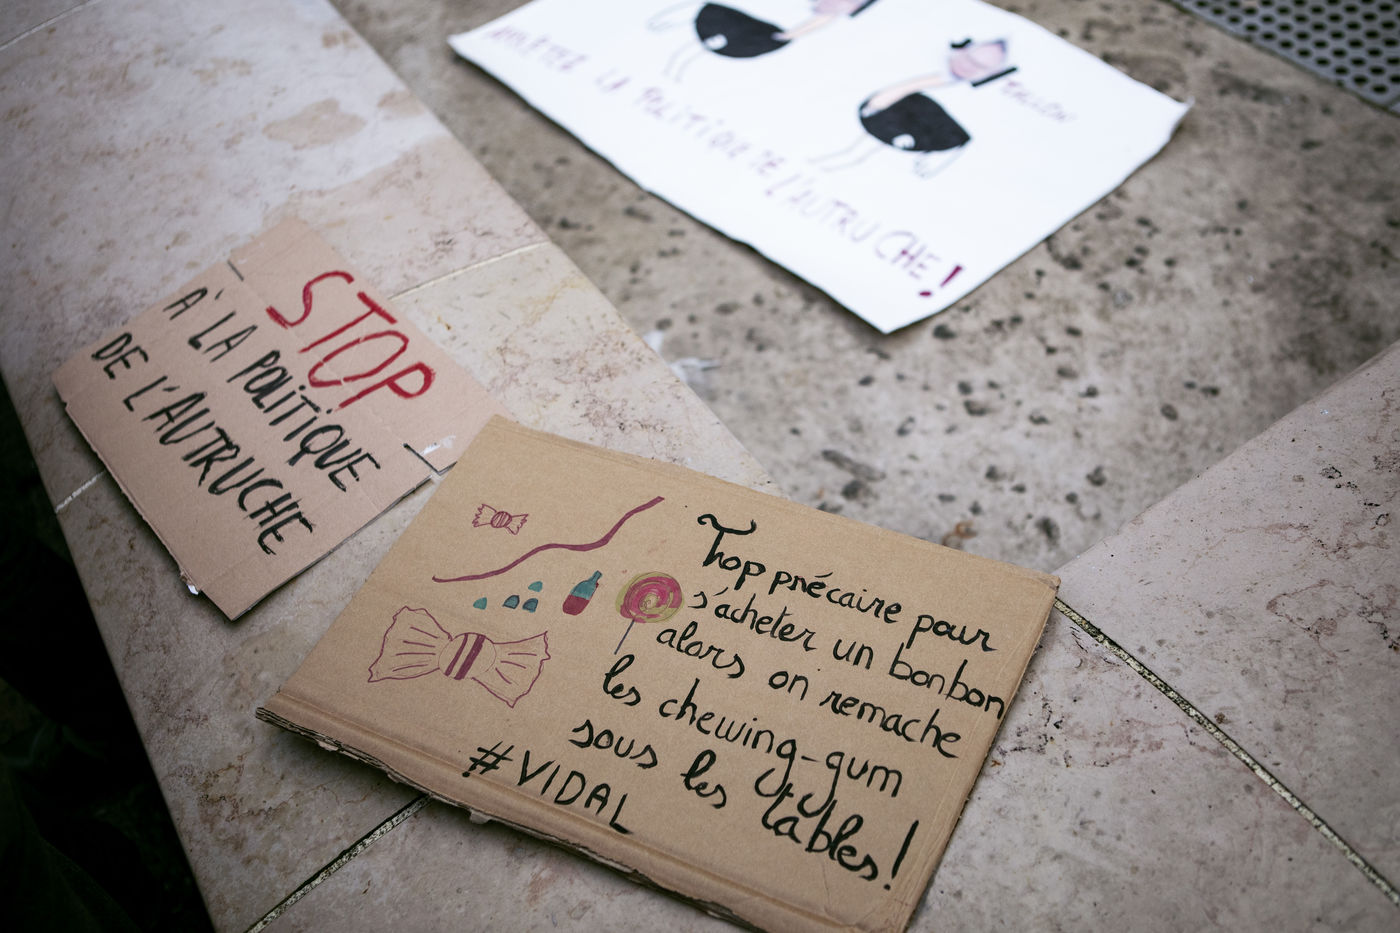 ARRÊTEZ LA POLITIQUE DE L'AUTRUCHE!
STOP
À LA POLITIQUE
DE L'AUTRUCHE
Trop précaire pour
s'acheter un bonbon
alors on remache
les chewing-gum
sous les tables!
#VIDAL